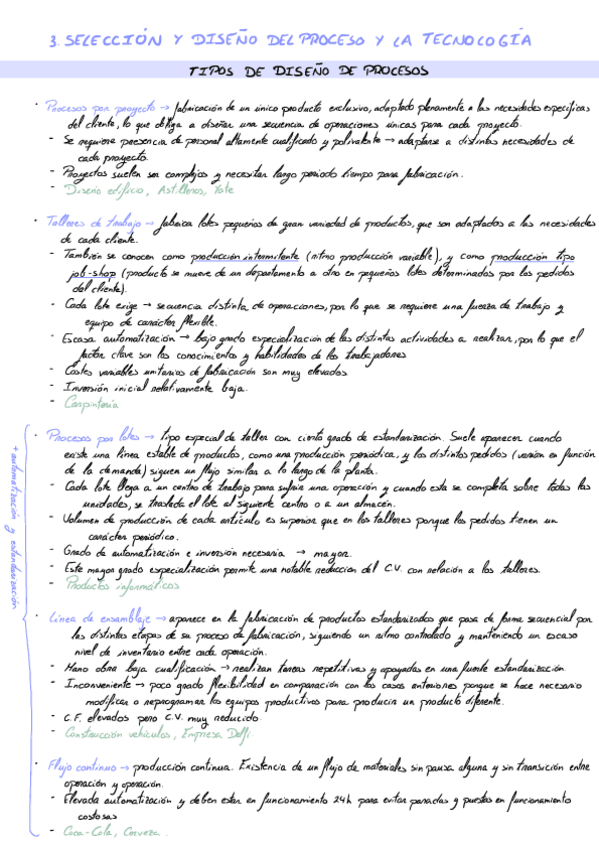 3. SELECCIÓN Y DISEÑO DEL PROCESO Y LA TECNOLOGÍA
TIPOS DE DISEÑO DE PROCESOS
· Procesos por proyecto → fabricación de un único producto exclusivo, adaptado plenamente a las necesidades específicas
del cliente, lo que obliga a diseñar una secuencia de operaciones únicas para cada proyecto.
- Se requiere presencia de personal altamente cualificado y polivalente → adaptarse a distintas necesidades de
cada proyecto.
- Proyectos suelen ser complejos y necesitar largo periodo tiempo para fabricación.
- Diseño edificio, Astilleros, Yate
· Talleres de trabajo → fabrica lotes pequeños de gran variedad de productos, que son adaptados a las necesidades
de cada cliente.
- También se conocen como producción intermitente (ritmo producción variable), y como producción tipo
job-shop (producto se mueve de un departamento a otro en pequeños lotes determinados por los pedidos
del cliente).
- Cada lote exige → secuencia distinta de operaciones, por lo que se requiere una fuerza de trabajo y
equipo de carácter flexible.
- Escasa automatización → bajo grado especialización de las distintas actividades a realizar, por lo que el
factor clave son los conocimientos y habilidades de los trabajadores
- Costes variables unitarios de fabricación son muy elevados
- Inversión inicial relativamente baja.
- Carpintería
+ automatización y estandarización
· Procesos por lotes → tipo especial de taller con cierto grado de estandarización. Suele aparecer cuando
existe una línea estable de productos, como una producción periódica, y los distintos pedidos (varían en función
de la demanda) siguen un flujo similar a lo largo de la planta.
- Cada lote llega a un centro de trabajo para sufrir una operación y cuando esta se completa sobre todas las
unidades, se traslada el lote al siguiente centro o a un almacén.
- Volumen de producción de cada artículo es superior que en los talleres porque los pedidos tienen un
carácter periódico.
- Grado de automatización e inversión necesaria → mayor.
- Este mayor grado especialización permite una notable reducción del C.V. con relación a los talleres.
- Productos informáticos
· Línea de ensamblaje → aparece en la fabricación de productos estandarizados que pasa de forma secuencial por
las distintas etapas de su proceso de fabricación, siguiendo un ritmo controlado y manteniendo un escaso
nivel de inventario entre cada operación.
- Mano obra baja cualificación → realizan tareas repetitivas y apoyadas en una fuerte estandarización
- Inconveniente → poco grado flexibilidad en comparación con los casos anteriores porque se hace necesario
modificar o reprogramar los equipos productivos para producir un producto diferente.
- C.F. elevados pero C.V. muy reducido.
- Construcción vehículos, Empresa Delfi.
· Flujo continuo → producción continua. Existencia de un flujo de materiales sin pausa alguna y sin transición entre
operación y operación.
- Elevada automatización y deben estar en funcionamiento 24h para evitar paradas y puestas en funcionamiento
costosas
- Coca-Cola, Cerveza.